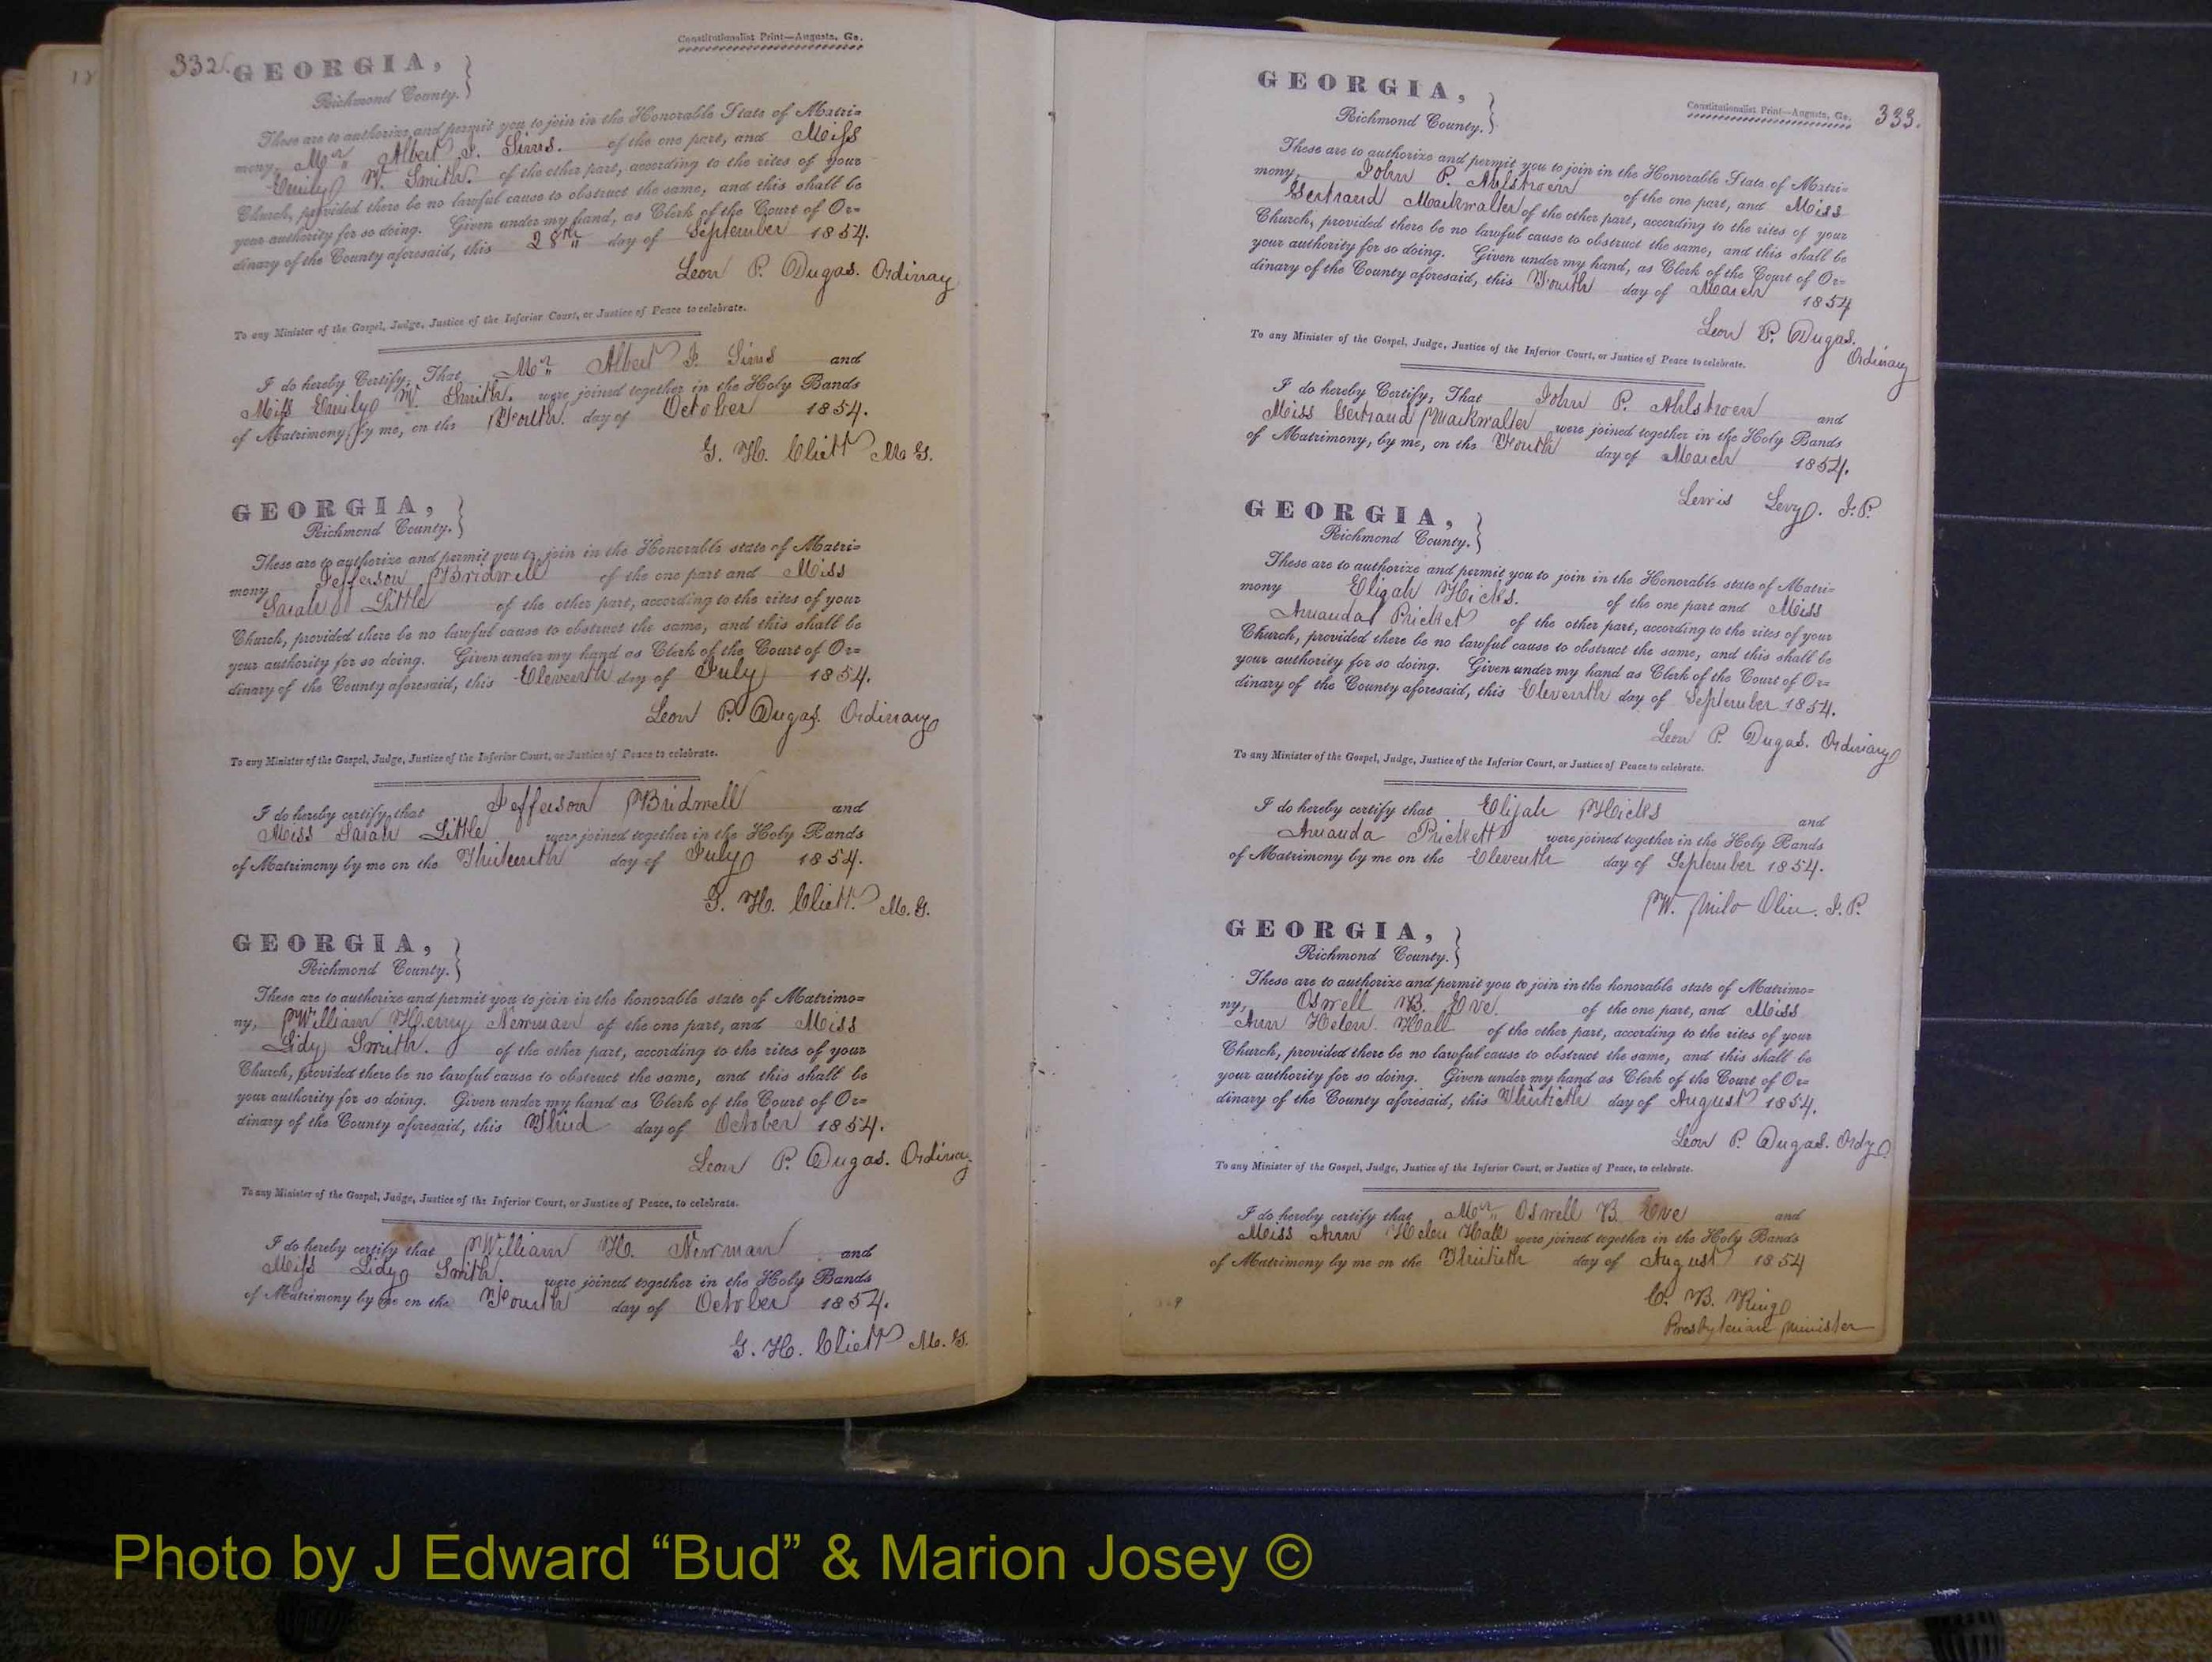 332.
Constitutionalist Print—Augusta, Ga.
GEORGIA,
Richmond County.
These are to authorize and permit you to join in the Honorable State of Matri=
mony, Mr Albert J. Sims. of the one part, and Miss
Emily W. Smith. of the other part, according to the rites of your
Church, provided there be no lawful cause to obstruct the same, and this shall be
your authority for so doing. Given under my hand, as Clerk of the Court of Or=
dinary of the County aforesaid, this 28th day of September 1854.
Leon P. Dugas. Ordinary
To any Minister of the Gospel, Judge, Justice of the Inferior Court, or Justice of Peace to celebrate.
I do hereby Certify, That Mr Albert J. Sims and
Miss Emily W. Smith. were joined together in the Holy Bands
of Matrimony, by me, on the Fourth. day of October 1854.
G. H. Cliett M G.
GEORGIA,
Richmond County.
These are to authorize and permit you to join in the Honorable state of Matri=
mony Jefferson Bridwell of the one part and Miss
Sarah Little of the other part, according to the rites of your
Church, provided there be no lawful cause to obstruct the same, and this shall be
your authority for so doing. Given under my hand as Clerk of the Court of Or=
dinary of the County aforesaid, this Eleventh day of July 1854.
Leon P. Dugas. Ordinary
To any Minister of the Gospel, Judge, Justice of the Inferior Court, or Justice of Peace to celebrate.
I do hereby certify that Jefferson Bridwell and
Miss Sarah Little were joined together in the Holy Bands
of Matrimony by me on the Thirteenth day of July 1854.
G. H. Cliett. M. G.
GEORGIA,
Richmond County.
These are to authorize and permit you to join in the honorable state of Matrimo=
ny, William Henry Newman of the one part, and Miss
Lidy Smith. of the other part, according to the rites of your
Church, provided there be no lawful cause to obstruct the same, and this shall be
your authority for so doing. Given under my hand as Clerk of the Court of Or=
dinary of the County aforesaid, this Third day of October 1854.
Leon P. Dugas. Ordinary
To any Minister of the Gospel, Judge, Justice of the Inferior Court, or Justice of Peace, to celebrate.
I do hereby certify that William H. Newman and
Miss Lidy Smith. were joined together in the Holy Bands
of Matrimony by me on the Fourth day of October 1854.
G. H. Cliett M. G.
GEORGIA,
Richmond County.
Constitutionalist Print—Augusta, Ga.
333.
These are to authorize and permit you to join in the Honorable State of Matri=
mony, John P. Ahlstroen of the one part, and Miss
Gertraud Markwalter of the other part, according to the rites of your
Church, provided there be no lawful cause to obstruct the same, and this shall be
your authority for so doing. Given under my hand, as Clerk of the Court of Or=
dinary of the County aforesaid, this Fourth day of March 1854
Leon P. Dugas.
Ordinary
To any Minister of the Gospel, Judge, Justice of the Inferior Court, or Justice of Peace to celebrate.
I do hereby Certify, That John P. Ahlstroen and
Miss Gertraud Markwalter were joined together in the Holy Bands
of Matrimony, by me, on the Fourth day of March 1854.
Lewis Levy. J.P.
GEORGIA,
Richmond County.
These are to authorize and permit you to join in the Honorable state of Matri=
mony Elijah Hicks. of the one part and Miss
Amanda Pricket of the other part, according to the rites of your
Church, provided there be no lawful cause to obstruct the same, and this shall be
your authority for so doing. Given under my hand as Clerk of the Court of Or=
dinary of the County aforesaid, this Eleventh day of September 1854.
Leon P. Dugas. Ordinary
To any Minister of the Gospel, Judge, Justice of the Inferior Court, or Justice of Peace to celebrate.
I do hereby certify that Elijah Hicks and
Amanda Prickett were joined together in the Holy Bands
of Matrimony by me on the Eleventh day of September 1854.
W. Milo Olin. J.P.
GEORGIA,
Richmond County.
These are to authorize and permit you to join in the honorable state of Matrimo=
ny, Oswell B. Eve. of the one part, and Miss
Ann Helen. Hall of the other part, according to the rites of your
Church, provided there be no lawful cause to obstruct the same, and this shall be
your authority for so doing. Given under my hand as Clerk of the Court of Or=
dinary of the County aforesaid, this Thirtieth day of August 1854.
Leon P. Dugas. Ordy.
To any Minister of the Gospel, Judge, Justice of the Inferior Court, or Justice of Peace, to celebrate.
I do hereby certify that Mr Oswell B. Eve and
Miss Ann Helen Hall were joined together in the Holy Bands
of Matrimony by me on the Thirtieth day of August 1854
C. B. King
Presbyterian Minister
Photo by J Edward “Bud” & Marion Josey ©